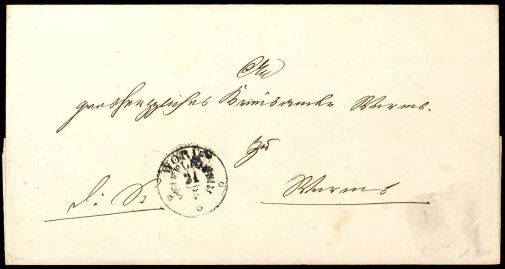 An
großherzogliches Kreisamt Worms.
zu
d. S.
Worms
WORMS
21